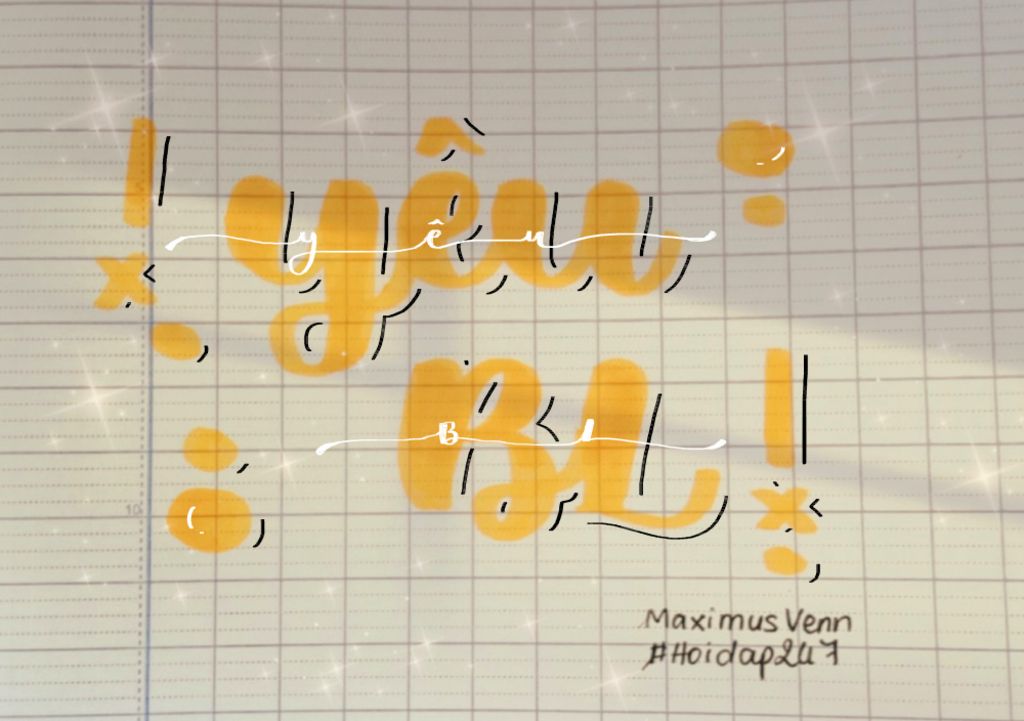 yêu
y ê u
BL
B L
10
Maximus Venn
#Hoidap247